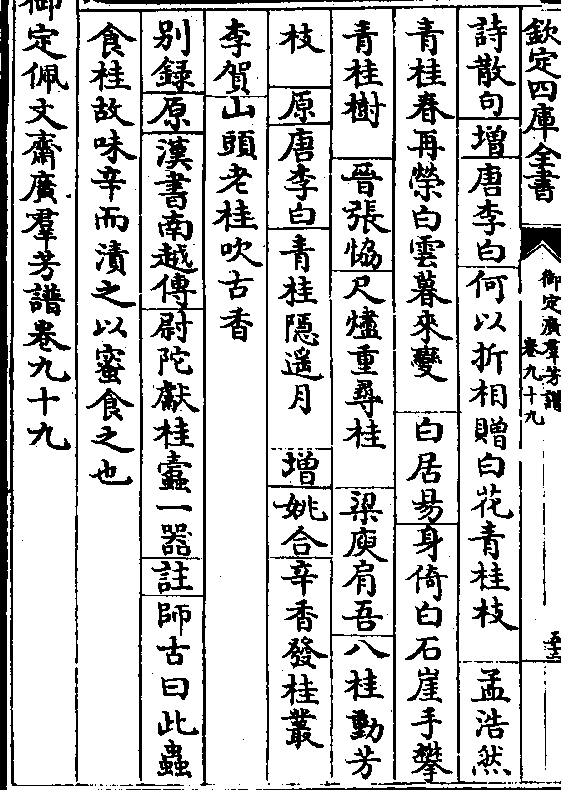 欽定四庫全書
御定廣羣芳譜
卷九十九
詩散句增唐李白何以折相贈白花青桂枝　孟浩然
青桂春再榮白雲暮來變　白居易身倚白石崖手攀
青桂樹　晉張協尺燼重尋桂　梁庾肩吾八桂動芳
枝　原唐李白青桂隱遥月　增姚合辛香發桂叢
李賀山頭老桂吹古香
别録原漢書南越傳尉陀獻桂蠧一器註師古曰此蟲
食桂故味辛而漬之以蜜食之也
御定佩文齋廣羣芳譜卷九十九